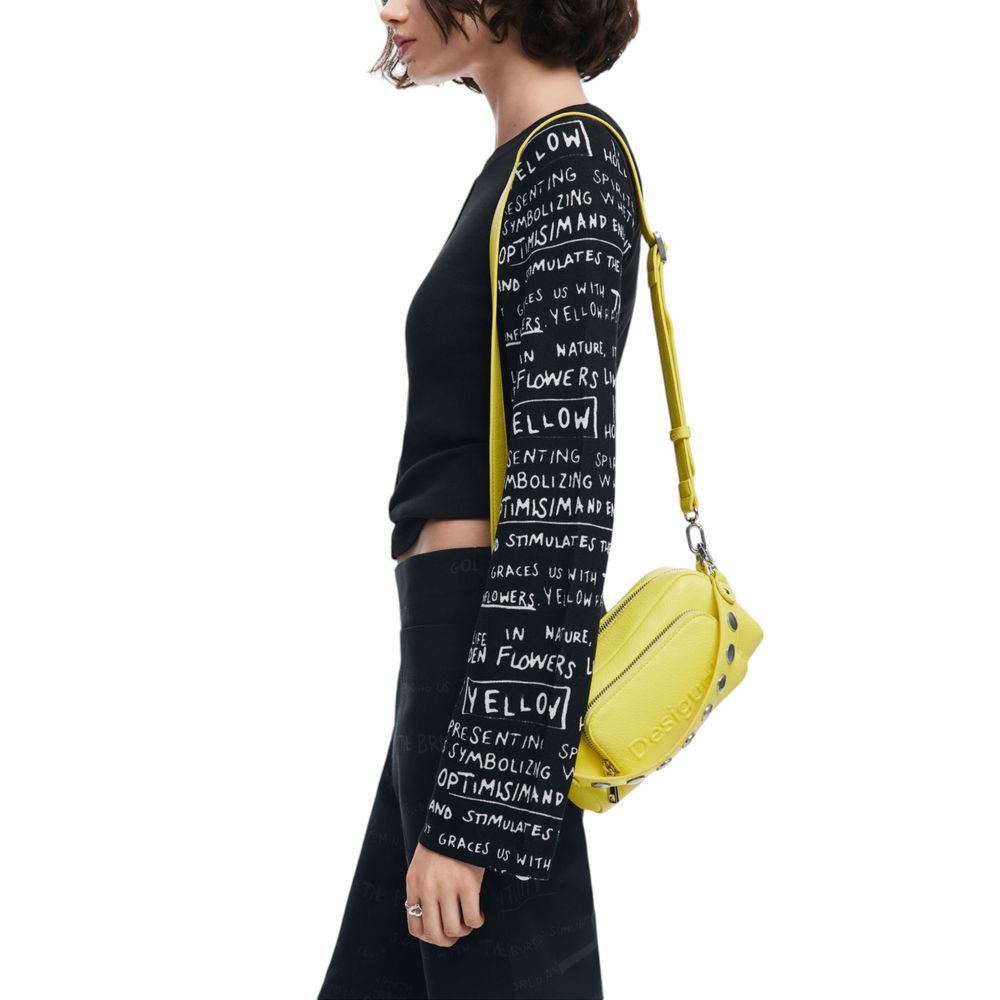 ELLOW HOLD
ESENTING SPIRIT
SYMBOLIZING WHET
OPTIMISIM AND EN
AND STIMULATES THE
GRACES US WITH
INF ERS. YELLOW
IN NATURE, IT
FLOWERS LI
ELLOW HO
SENTING SPIR
MBOLIZING W
OPTIMISIM AND EN
D STIMULATES THE
GRACES US WITH
FLOWERS. YELLOW
LIFE IN NATURE,
DEN FLOWERS L
YELLOW H
PRESENTING SP
SYMBOLIZING W
OPTIMISIM AND
AND STIMULATES
T GRACES US WITH
Desigual
GOL
THE BR
THE
THE BURST
ORLD AN